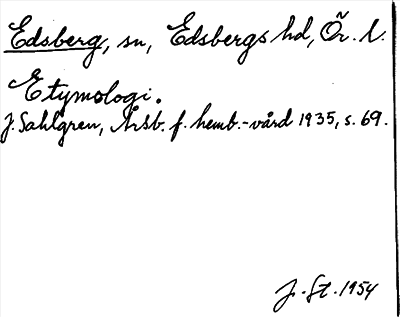 Edsberg, sn, Edsbergs hd, Ör. l.
Etymologi.
J. Sahlgren, Årsb. f. hemb.-vård 1935, s. 69.
J. St. 1954